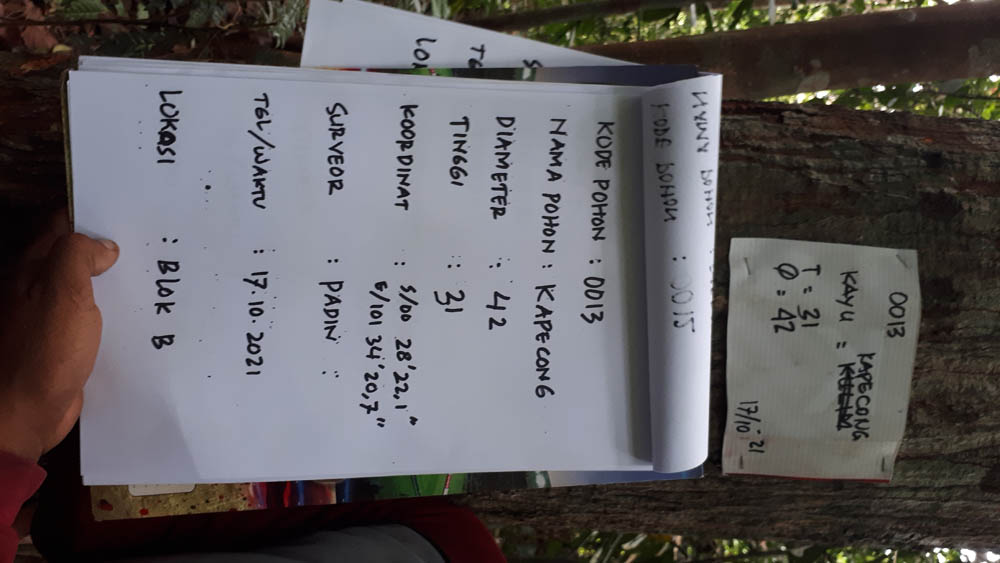 0013
KAPECONG
KAYU = KULIM
T = 31
Ø = 42
17/10-21
NAMA POHON :
KODE POHON : 0015
KODE POHON : 0013
NAMA POHON : KAPECONG
DIAMETER : 42
TINGGI : 31
KOORDINAT : S/00 28'22,1"
E/101 34'20,7"
SURVEOR : PADIN :
TGL/WAKTU : 17.10.2021
LOKASI : BLOK B
S
TG
LOK